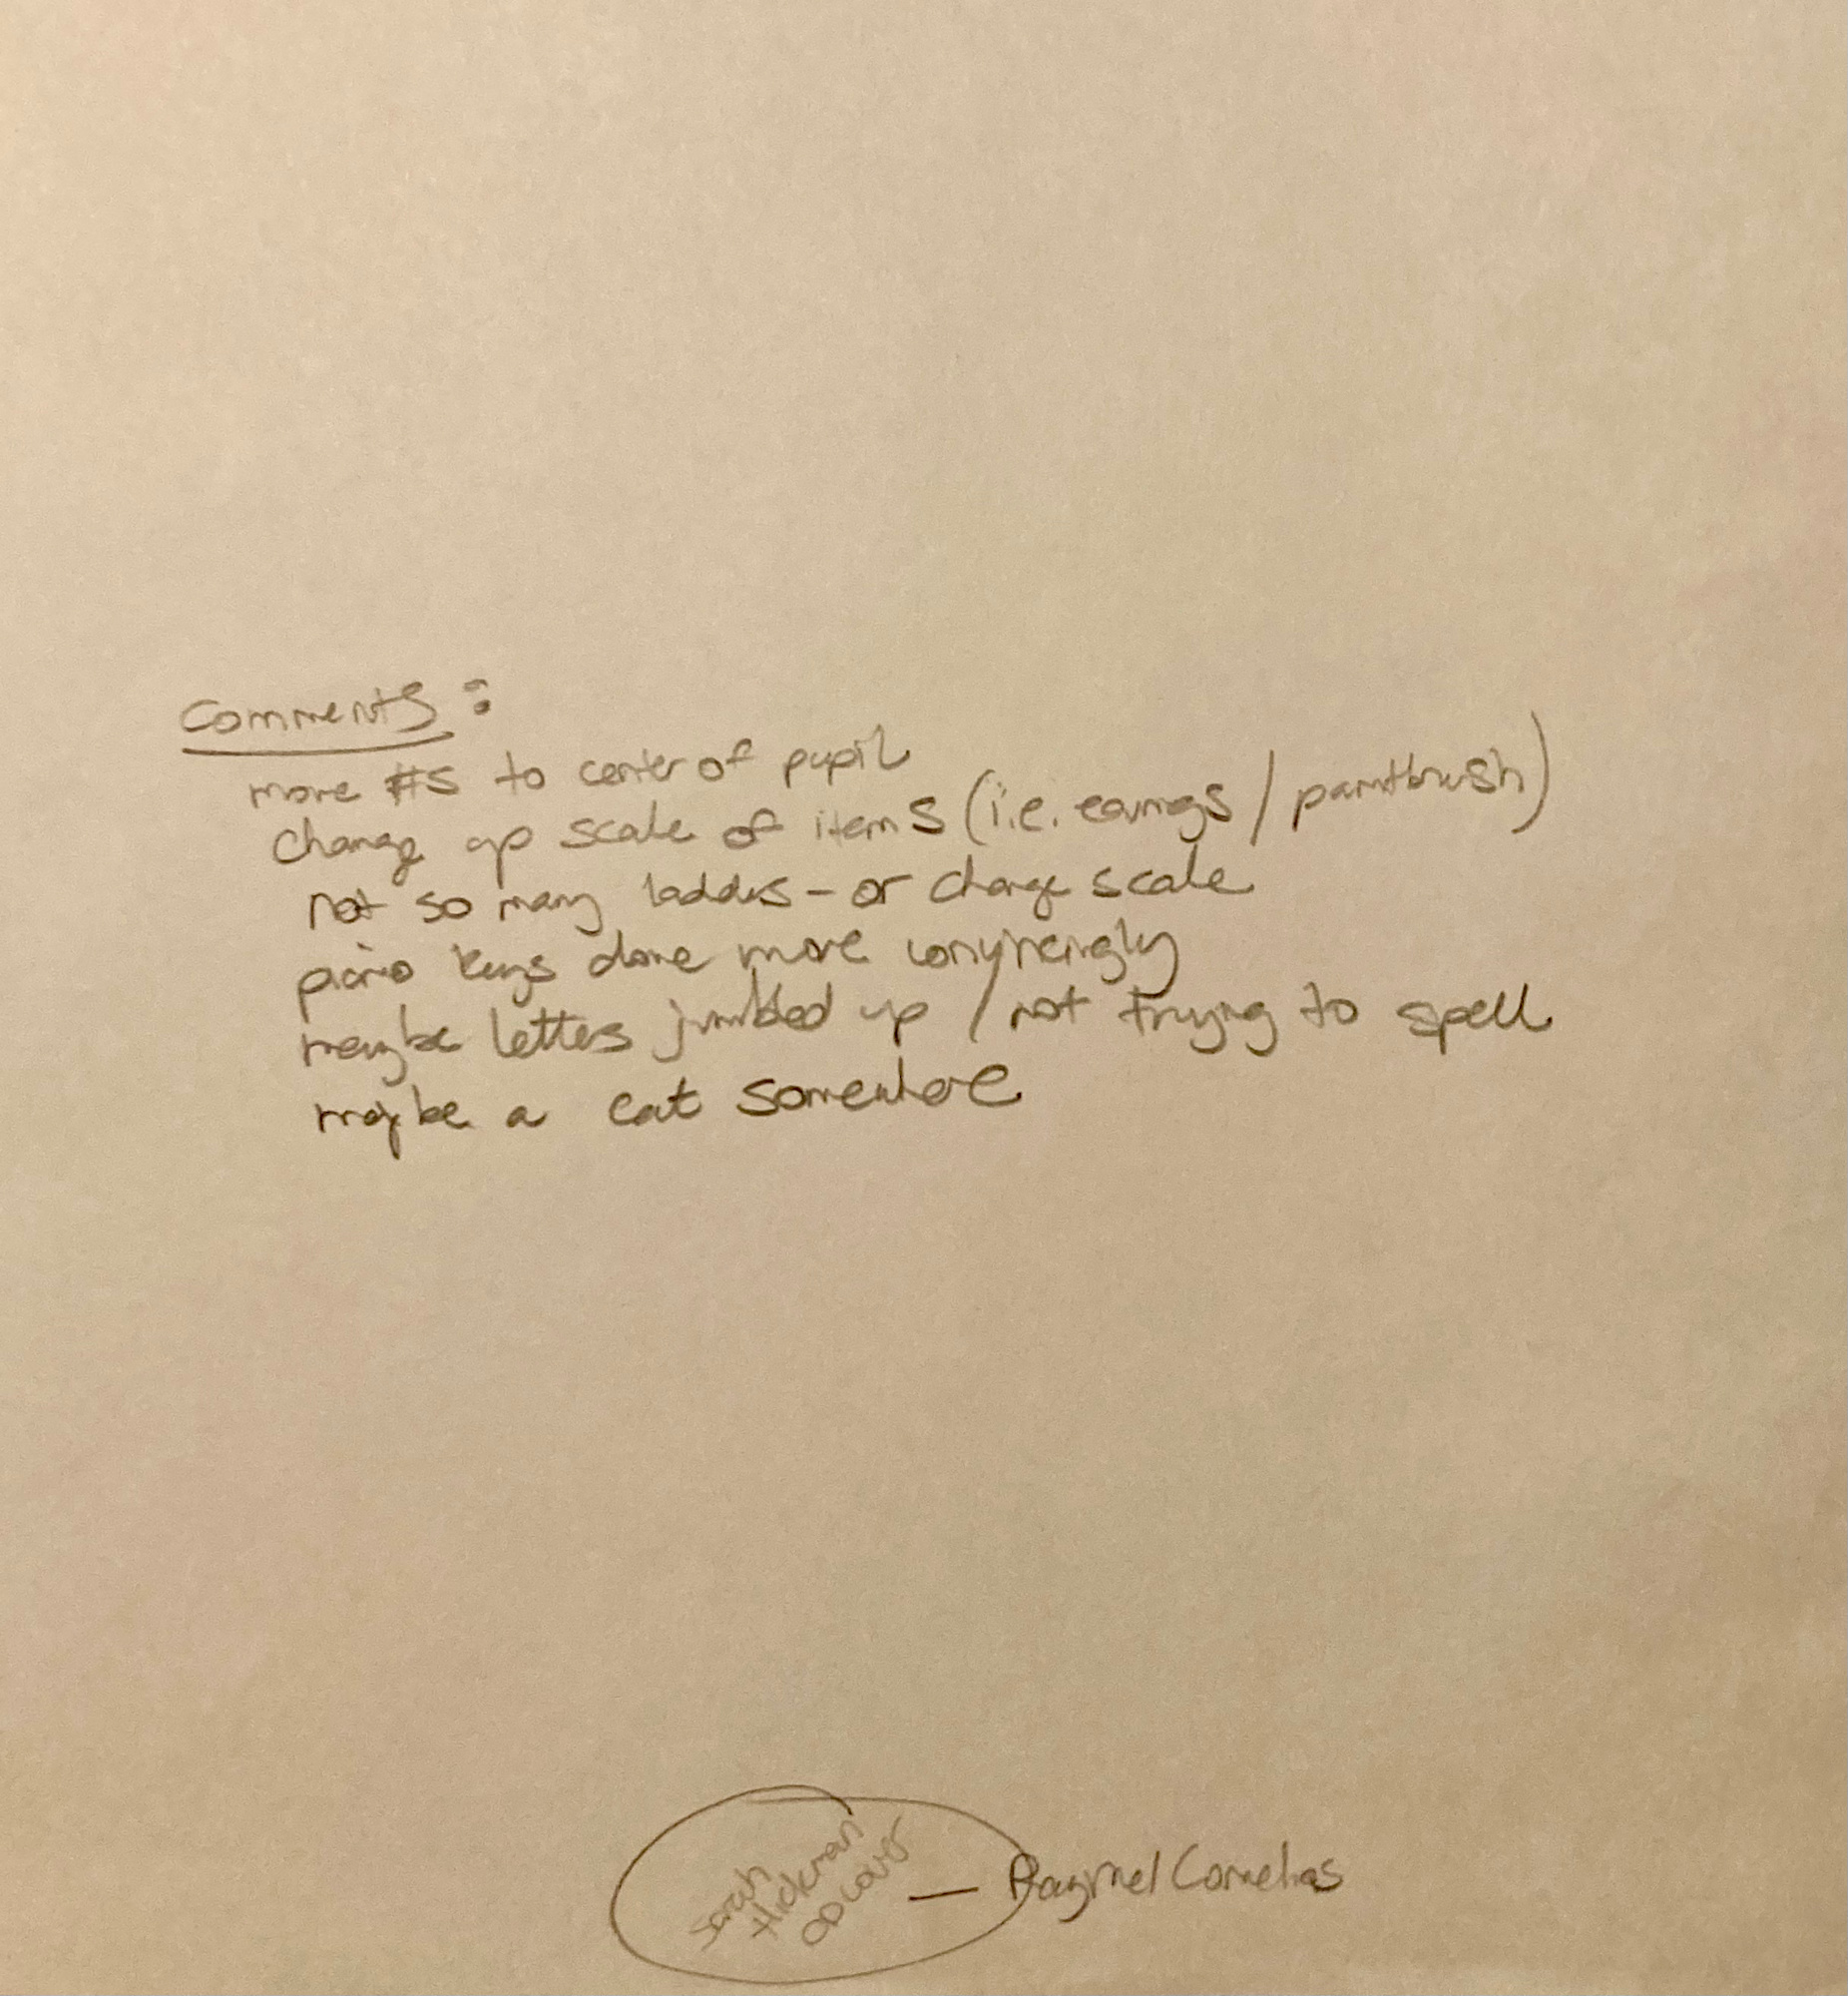 Comments:
move #s to center of pupil
change up scale of items (i.e. earings / paintbrush)
not so many ladders - or change scale
piano keys done more convincingly
maybe letters jumbled up / not trying to spell
maybe a cat somewhere
Sarah
Hickman
CD cover
— Raymel Cornelius